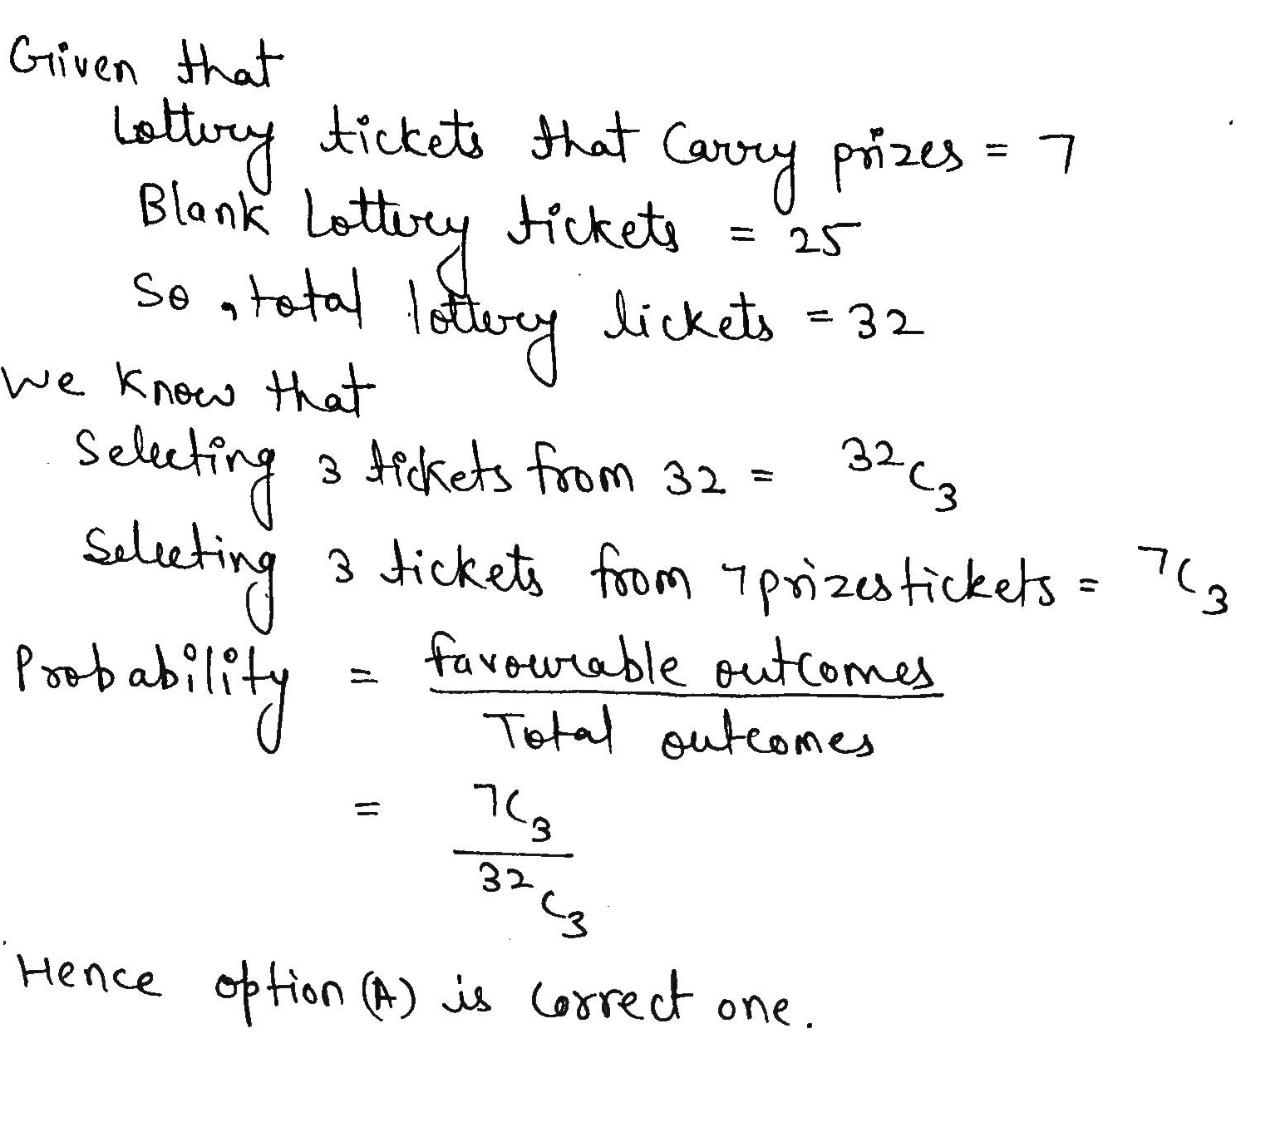 Given that
Lottery tickets that carry prizes = 7
Blank Lottery tickets = 25
So, total lottery lickets = 32
We know that
Selecting 3 tickets from 32 = ³²C₃
Selecting 3 tickets from 7 prizes tickets = ⁷C₃
Probability = favourable outcomes
Total outcomes
= 7C₃
³²C₃
Hence option (A) is correct one.